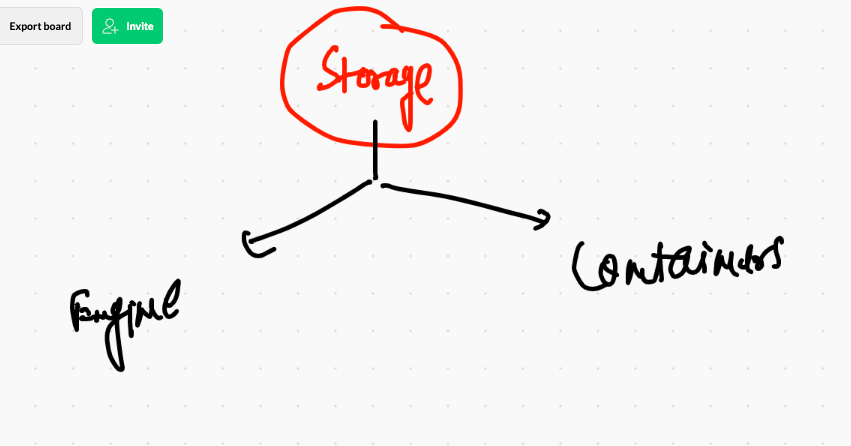 Export board
Invite
Storage
Engine
Containers